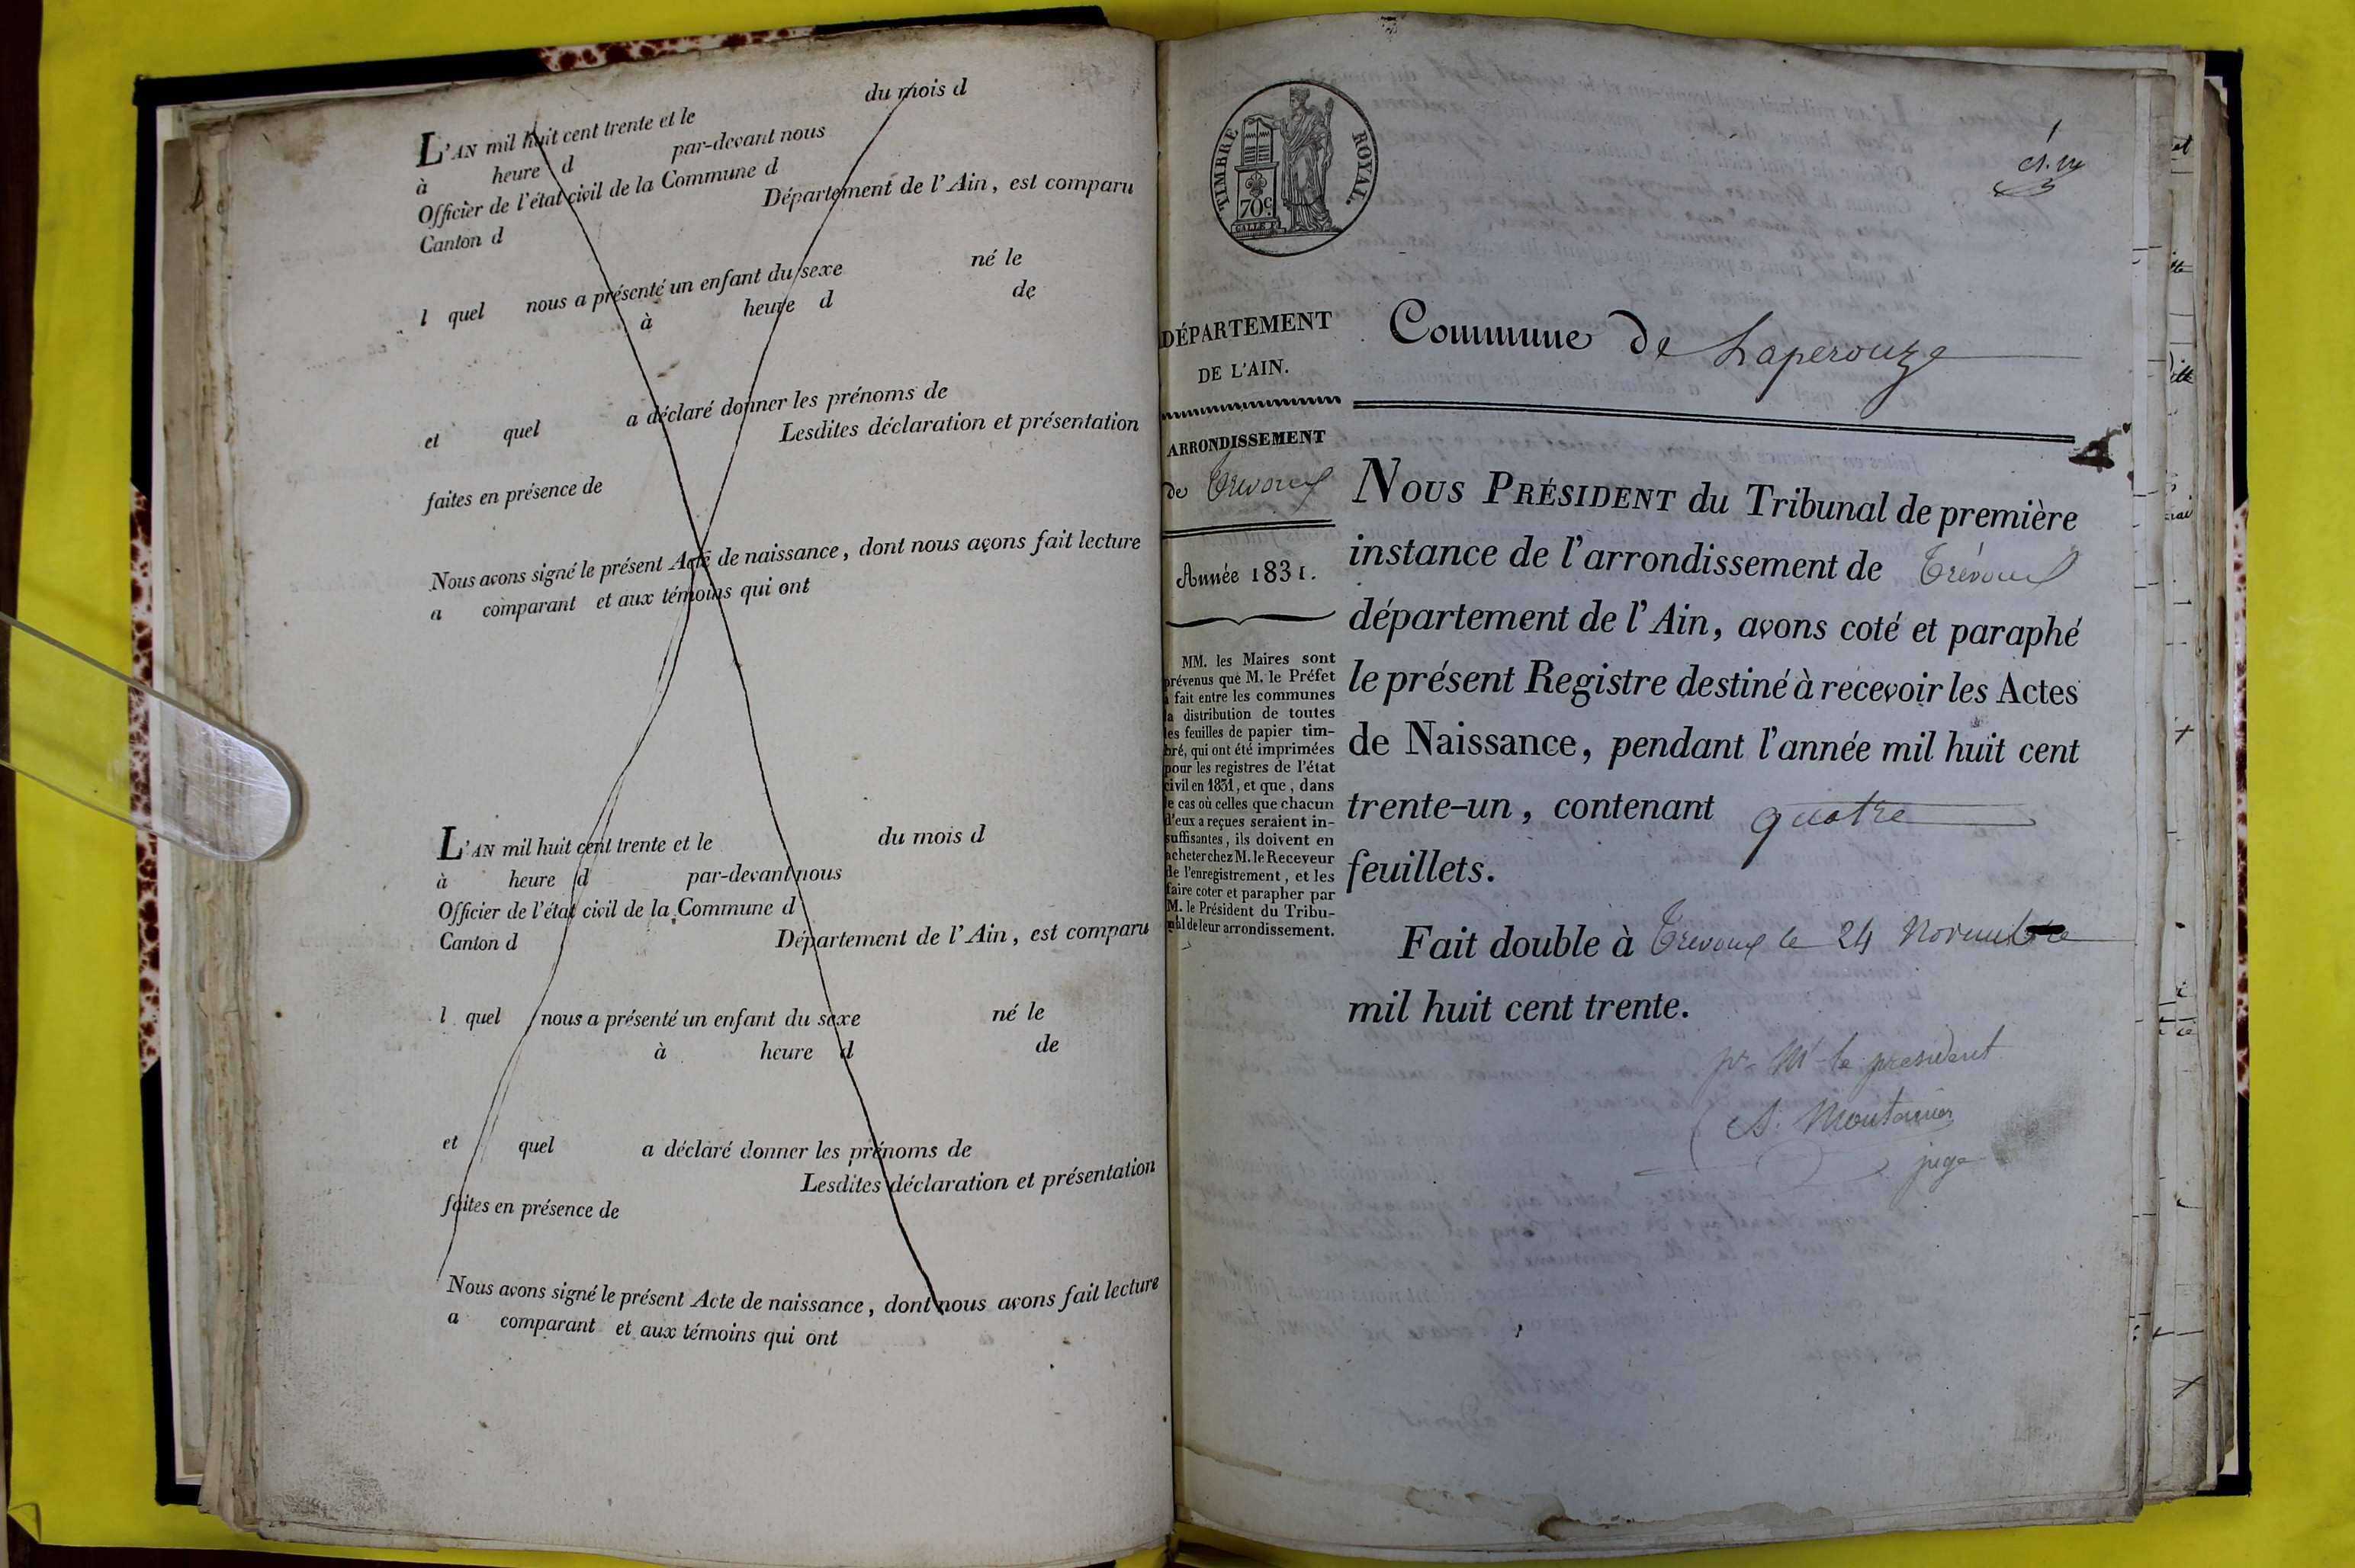 du mois d
L'AN mil huit cent trente et le
à heure d par-devant nous
Officier de l'état civil de la Commune d
Canton d Département de l'Ain, est comparu
l quel nous a présenté un enfant du sexe né le
à heure d de
et quel a déclaré donner les prénoms de
Lesdites déclaration et présentation
faites en présence de
Nous avons signé le présent Acte de naissance, dont nous avons fait lecture
a comparant et aux témoins qui ont
L'AN mil huit cent trente et le du mois d
à heure d par-devant nous
Officier de l'état civil de la Commune d
Canton d Département de l'Ain, est comparu
l quel nous a présenté un enfant du sexe né le
à heure d de
et quel a déclaré donner les prénoms de
Lesdites déclaration et présentation
faites en présence de
Nous avons signé le présent Acte de naissance, dont nous avons fait lecture
a comparant et aux témoins qui ont
TIMBRE ROYAL.
70c.
1
DÉPARTEMENT
DE L'AIN.
ARRONDISSEMENT
de Trevoux
Année 1831.
MM. les Maires sont
prévenus que M. le Préfet
a fait entre les communes
la distribution de toutes
les feuilles de papier tim-
bré, qui ont été imprimées
pour les registres de l'état
civil en 1831, et que, dans
le cas où celles que chacun
d'eux a reçues seraient in-
suffisantes, ils doivent en
acheter chez M. le Receveur
de l'enregistrement, et les
faire coter et parapher par
M. le Président du Tribu-
nal de leur arrondissement.
Commune de Laperouze
NOUS PRÉSIDENT du Tribunal de première
instance de l'arrondissement de Trévoux
département de l'Ain, avons coté et paraphé
le présent Registre destiné à recevoir les Actes
de Naissance, pendant l'année mil huit cent
trente-un, contenant quatre
feuillets.
Fait double à Trevoux le 24 Novembre
mil huit cent trente.
pr. Mr le president
juge